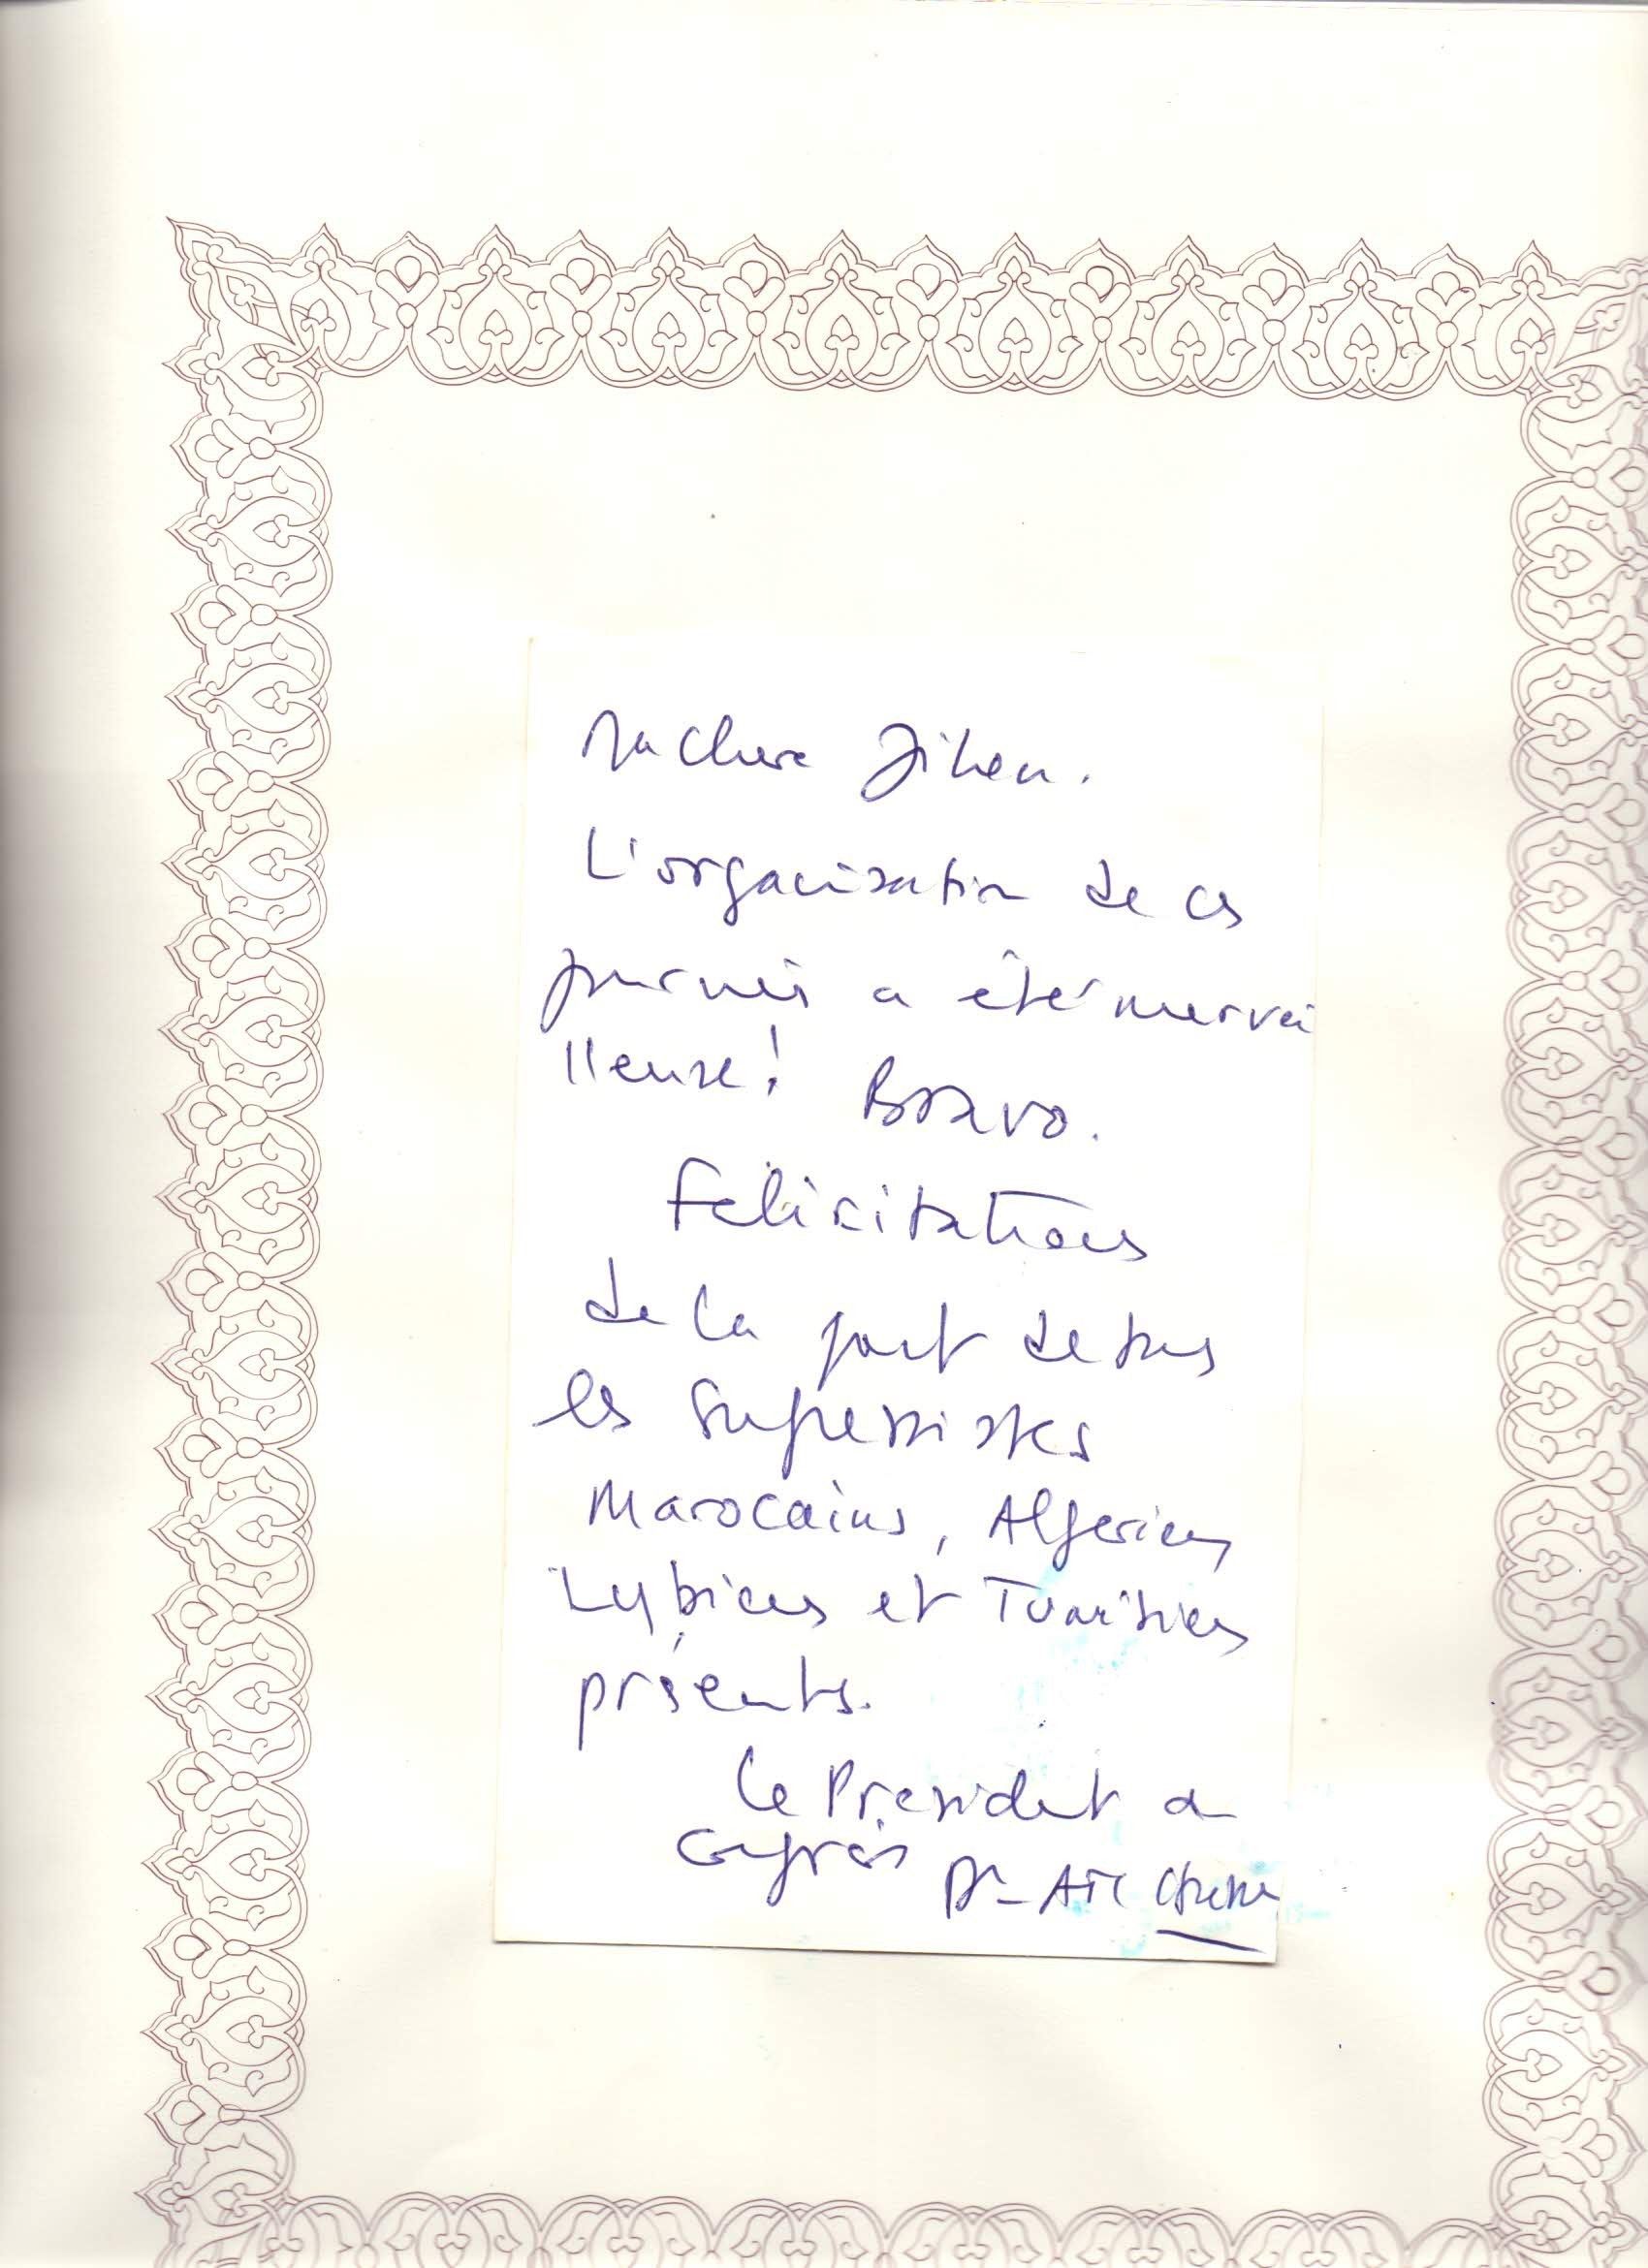 Ma Chere Jihen.
L'organisation de ces
journées a été mervei
lleuse! Bravo.
Felicitations
de la part de tous
les
Marocains, Algeriens
Lybiens et Tunisiens
présents.
Le President du
Congrès Dr-